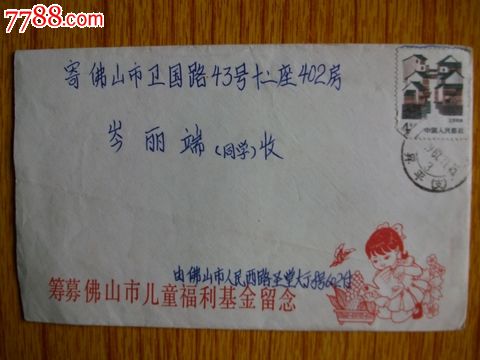 7788.com
寄 佛山市卫国路43号十二座402房
岑丽端(同学)收
中国人民邮政
由佛山市人民西路圣堂大厅
筹募佛山市儿童福利基金留念